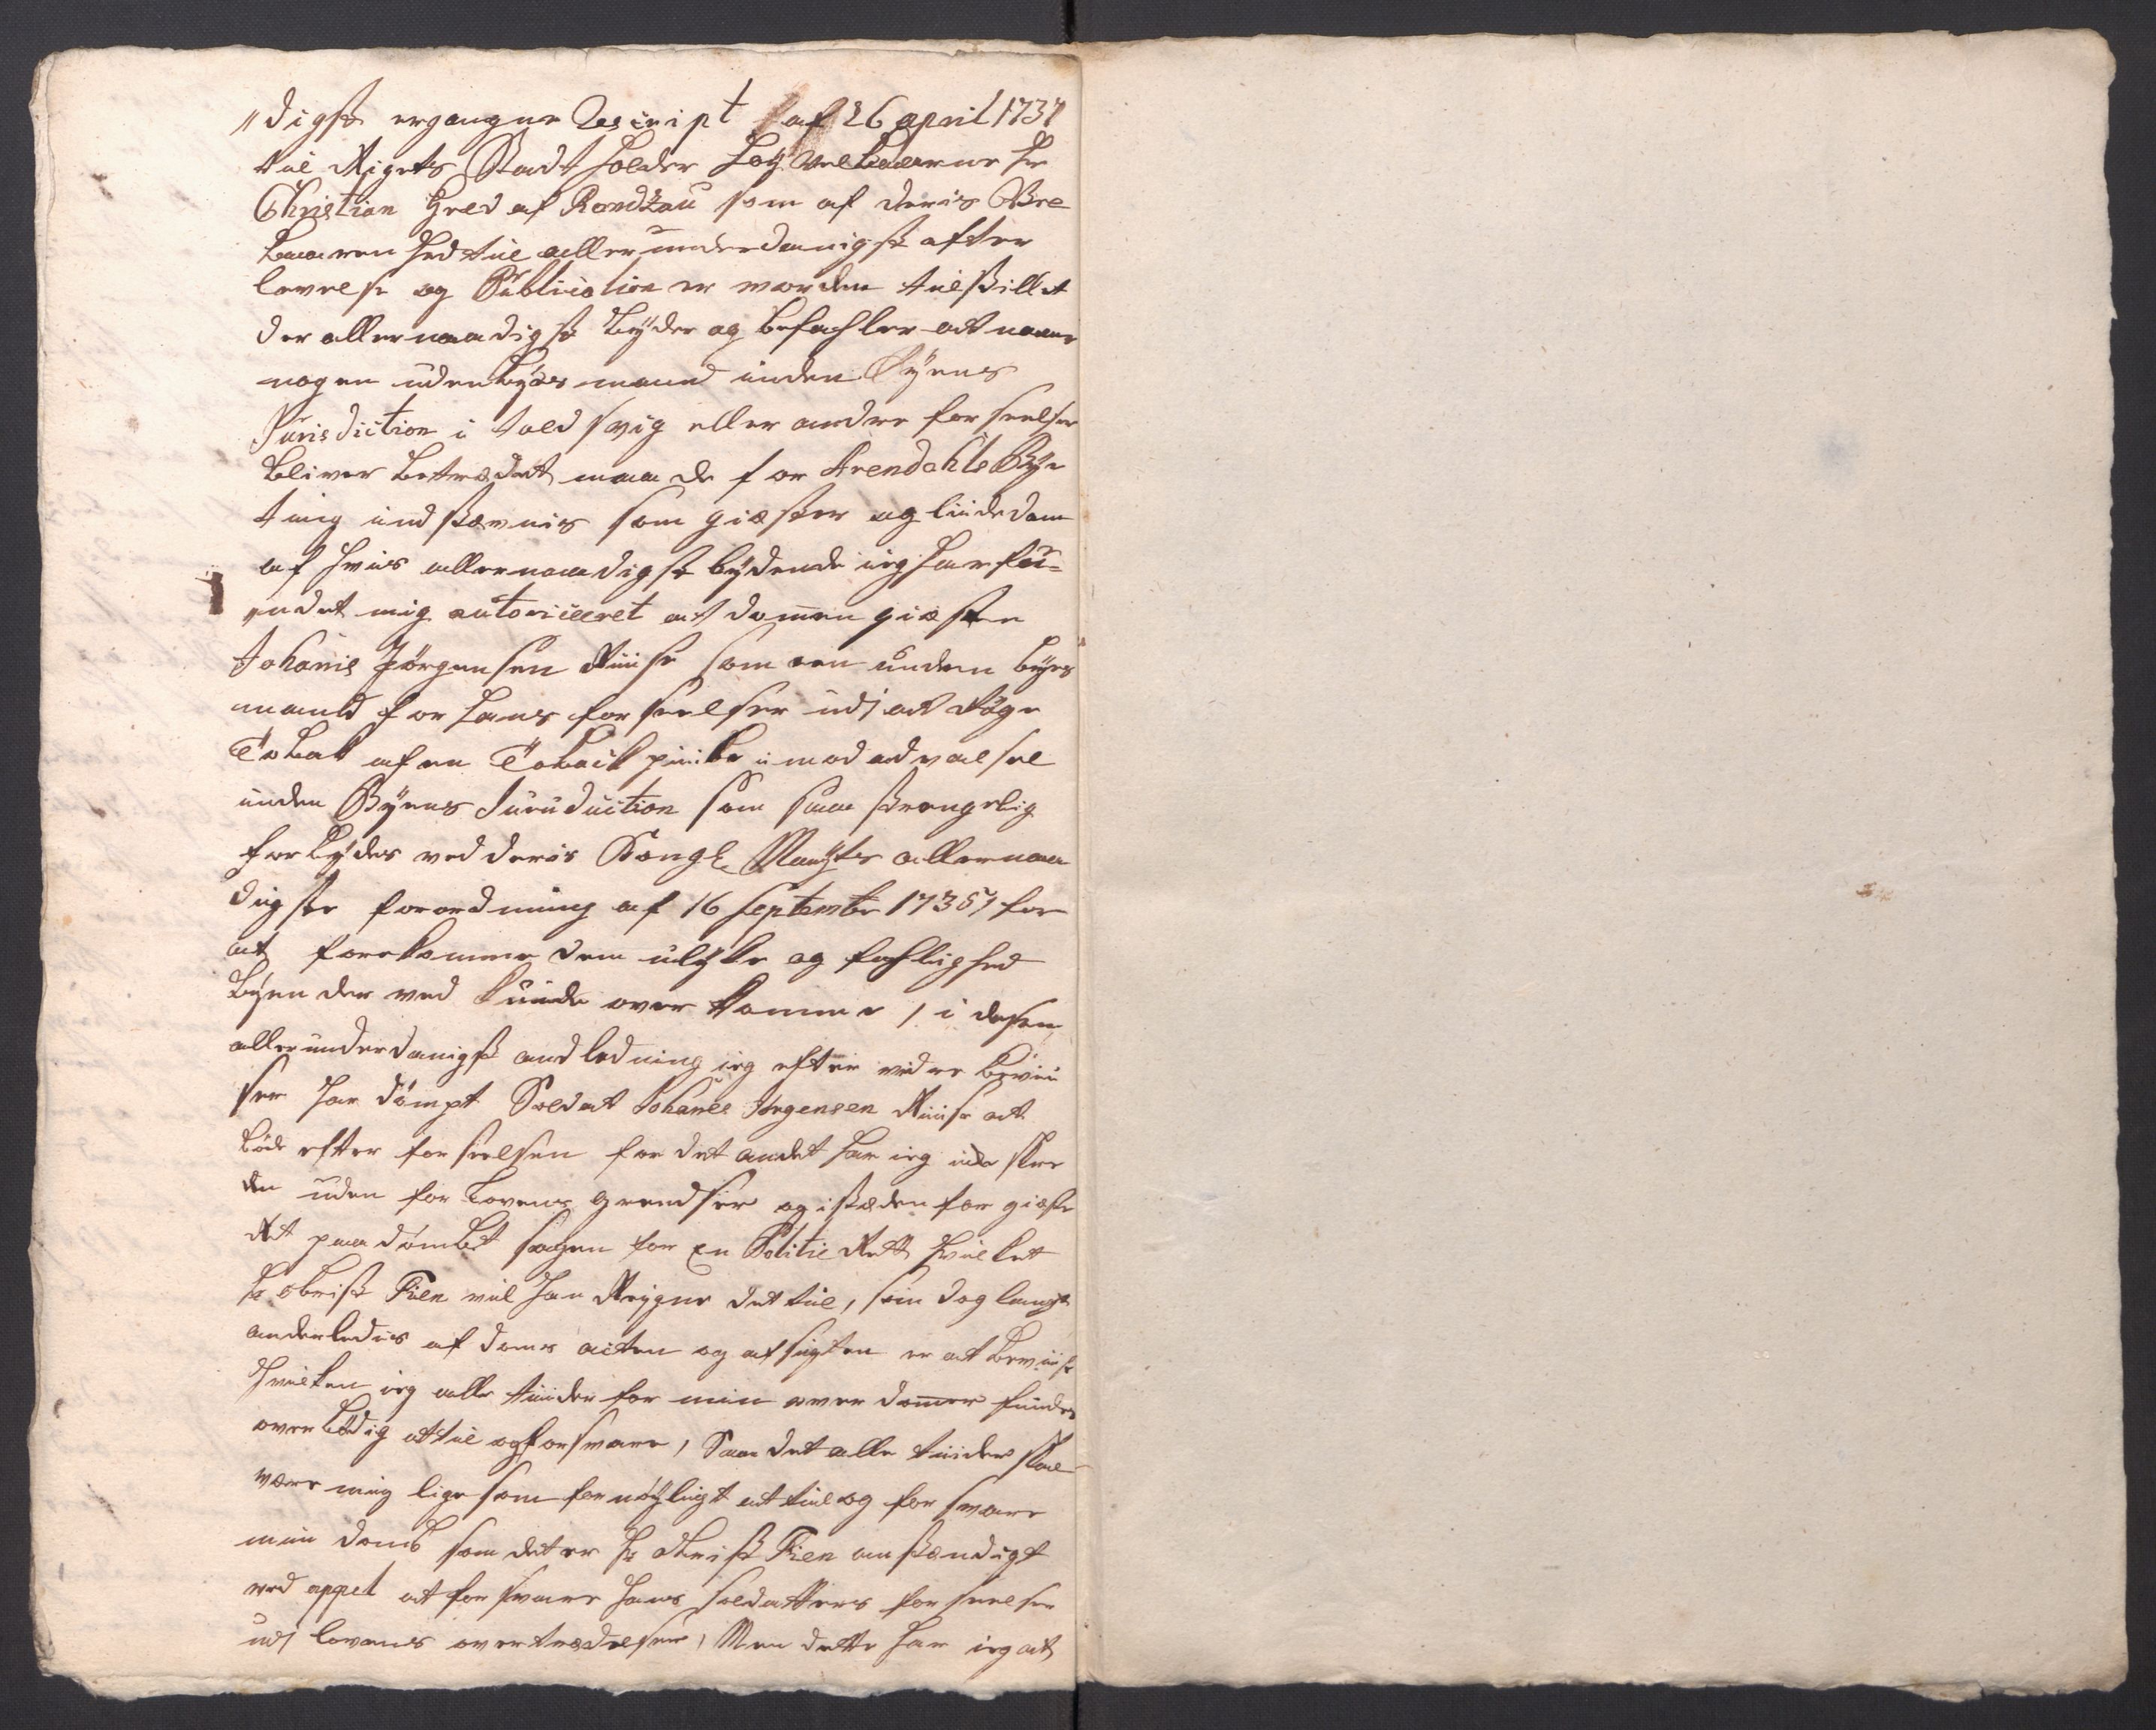 "digste ergangne Rescript af 26 april 1737
til Rigets Stadt holder Høy velbaarne Hr
Christian Grev af Randzau som af deris Vel
baarenhed til aller underdanigste efter
levelse og Publication er worden tilskillet
der aller naadigste byder og befahler at naar
nogen udenbyes mand inden Byens
Jurisdiction i told svig eller andre forseelser
bliver betrædet maa de for Arendahls Bye
ting indstævnis som giæster og liide dom
af hvis allernaadigste bydende ieg har fu¬
ndet mig autoriceret at dømme giæsten
Johanis Jörgensen Riise som een uden byes
mand for hans forseelser udj at Røge
Tobak af en Tobaks piibe imod advarsel
inden Byens Jurisdiction som saa strengelig
forbydes ved deris Kongl. Mayts allernaa
digste forordning af 16 Septembr 1735 for
at forekomme dem ulykke og fahlighed
byen der ved kunde over komme, i desen
allerunderdanigste andledning ieg efter vedre bevii
ser har dömpt Soldat Johanes Jörgensen Riise at
böde efter forseelsen for det andet har ieg icke skre
den uden for Lovens grendser og istæden for giæste
Ret paa dömbt sagen for En Politie Rett hvilket
Hr obrist Fien vil han Reigne det til, som dog langt
anderledis af doms acten og afsigten er at beviise
hvilken ieg alle tiider for min over domer findes
overbødig at til og forsvare, Saa det alle tiider skal
være mig lige som fornøyligt at til og for svare
min domb som det er Hr obrist Fien anstændigt
ved appel at forsvare hans soldatters forseelser
udj lovens overtrædelser, Men dette har ieg at